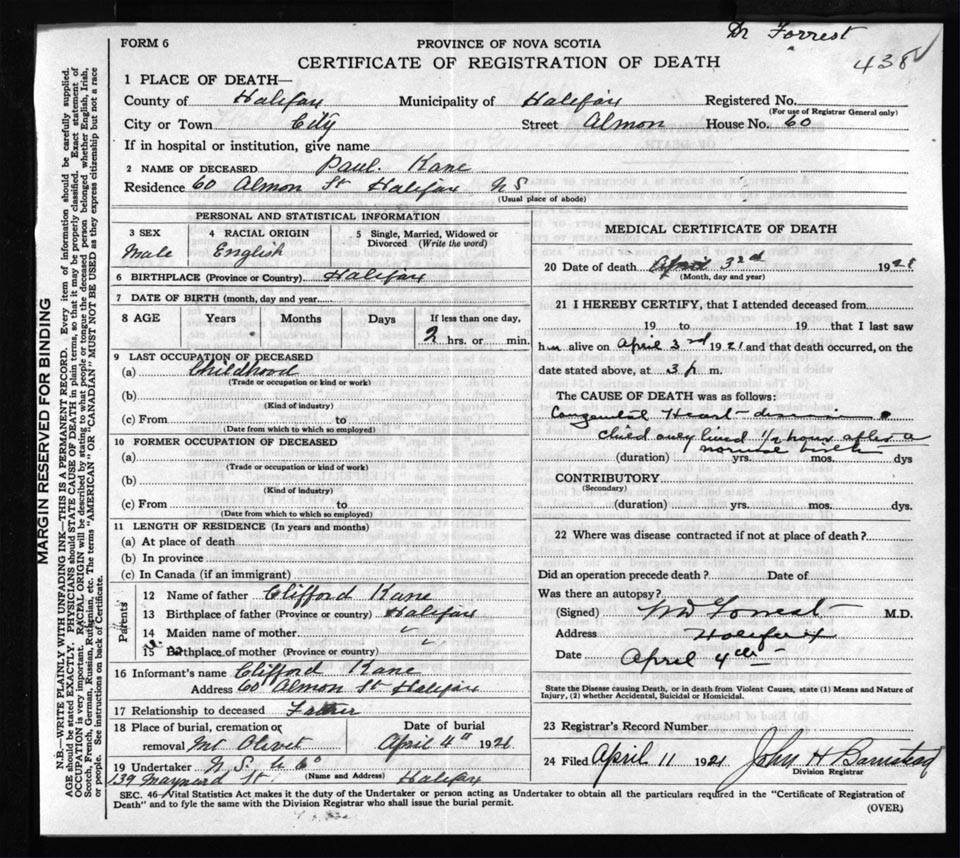 Dr Forrest
438
FORM 6
PROVINCE OF NOVA SCOTIA
CERTIFICATE OF REGISTRATION OF DEATH
1 PLACE OF DEATH—
County of Halifax Municipality of Halifax Registered No.
(For use of Registrar General only)
City or Town City Street Almon House No. 60
If in hospital or institution, give name
2 NAME OF DECEASED Paul. Kane
Residence 60 Almon St Halifax NS
(Usual place of abode)
PERSONAL AND STATISTICAL INFORMATION
3 SEX 4 RACIAL ORIGIN 5 Single, Married, Widowed or Divorced (Write the word)
Male English
6 BIRTHPLACE (Province or Country) Halifax
7 DATE OF BIRTH (month, day and year)
8 AGE Years Months Days If less than one day,
2 hrs. or min.
9 LAST OCCUPATION OF DECEASED
(a) Childhood
(Trade or occupation or kind or work)
(b)
(Kind of industry)
(c) From to
(Date from which to which so employed)
10 FORMER OCCUPATION OF DECEASED
(a)
(Trade or occupation or kind of work)
(b)
(Kind of industry)
(c) From to
(Date from which to which so employed)
11 LENGTH OF RESIDENCE (In years and months)
(a) At place of death
(b) In province
(c) In Canada (if an immigrant)
Parents
12 Name of father Clifford Kane
13 Birthplace of father (Province or country) Halifax
14 Maiden name of mother "
15 Birthplace of mother (Province or country) "
16 Informant's name Clifford Kane
Address 60 Almon St Halifax
17 Relationship to deceased Father
18 Place of burial, cremation or removal Mt Olivet
Date of burial
April 4th 1921
19 Undertaker N. S. U Co
(Name and Address)
139 Maynard St. Halifax
MEDICAL CERTIFICATE OF DEATH
20 Date of death April 3rd 1921
(Month, day and year)
21 I HEREBY CERTIFY, that I attended deceased from
19 to 19 that I last saw
him alive on April 3rd 1921 and that death occurred, on the
date stated above, at 3 p m.
The CAUSE OF DEATH was as follows:
Congenital Heart disease
child only lived 1/2 hour after a
normal birth
(duration) yrs. mos. dys
CONTRIBUTORY
(Secondary)
(duration) yrs. mos. dys.
22 Where was disease contracted if not at place of death?
Did an operation precede death? Date of
Was there an autopsy?
(Signed) Forrest M.D.
Address Halifax
Date April 4th
State the Disease causing Death, or in death from Violent Causes, state (1) Means and Nature of
Injury, (2) whether Accidental, Suicidal or Homicidal.
23 Registrar's Record Number
24 Filed April 11 1921 John H Barnstead
Division Registrar
SEC. 46—Vital Statistics Act makes it the duty of the Undertaker or person acting as Undertaker to obtain all the particulars required in the "Certificate of Registration of
Death" and to fyle the same with the Division Registrar who shall issue the burial permit.
(OVER)
MARGIN RESERVED FOR BINDING
N.B.—WRITE PLAINLY WITH UNFADING INK—THIS IS A PERMANENT RECORD. Every item of information should be carefully supplied.
AGE should be stated EXACTLY. PHYSICIANS should STATE CAUSE OF DEATH in plain terms, so that it may be properly classified. Exact statement of
OCCUPATION is very important. RACIAL ORIGIN will be described by stating to what people or tongue the deceased person belonged whether English, Irish,
Scotch, French, German, Russian, Ruthenian, etc. The terms "AMERICAN" OR "CANADIAN" MUST NOT BE USED as they express citizenship but not a race
or people. See instructions on back of Certificate.